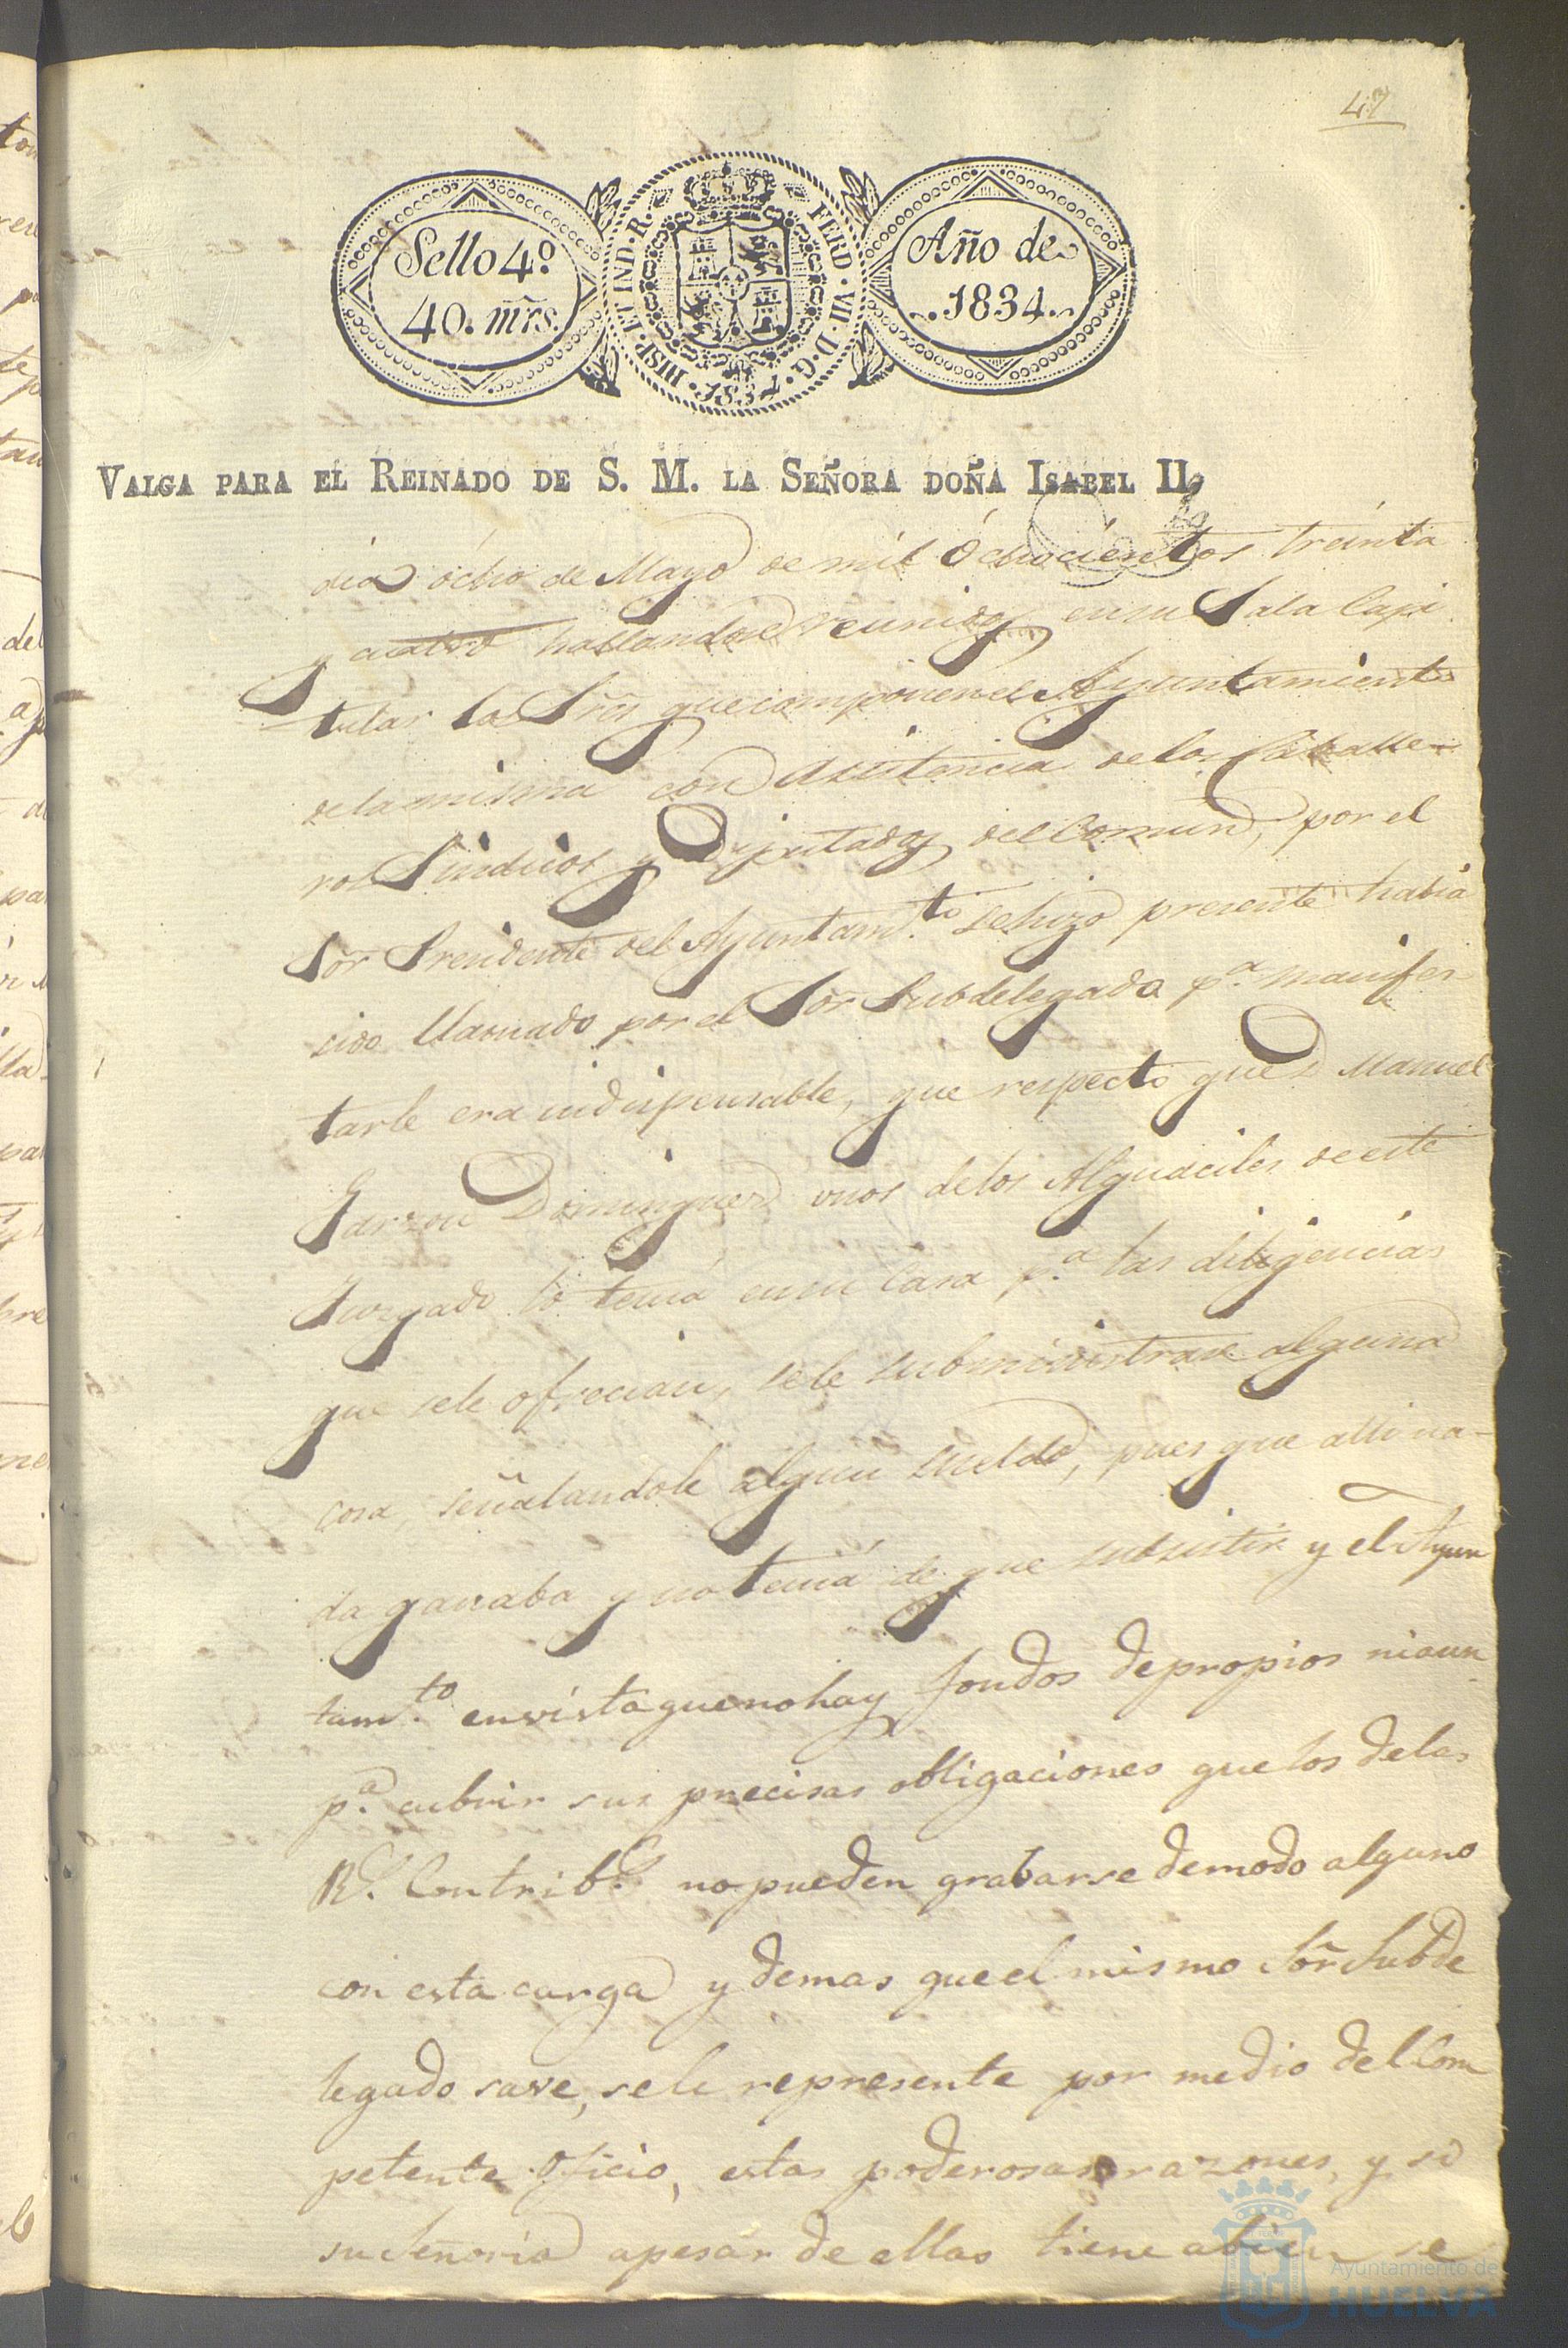 47
Sello 4.º
40. mrs.
HISP. ET IND. R. FERD. VII. D. G. 1834.
Año de
1834.
VALGA PARA EL REINADO DE S. M. LA SEÑORA DOÑA ISABEL II,
dia ocho de Mayo de mil ochocientos treinta
y cuatro hallandose reunidos en su Sala Capi
tular los Sres que componen el Ayuntamiento
de la misma con asistencia de los Caballe-
ros Sindicos y Diputados del Comun, por el
Sor Presidente del Ayuntam.to se hizo presente habia
sido llamado por el Sor Subdelegado p.a manifes
tarle era indispensable, que respecto que D. Manuel
Garzon Dominguez unos de los Alguaciles de este
Juzgado lo tenia en su Casa p.a las diligencias
que sele ofrecian, sele subministrase alguna
cosa, señalandole algun sueldo, pues que alli na-
da ganaba y no tenia de que subsistir y el Ayun
tam.to en vista que no hay fondos de propios ni aun
p.a cubrir sus precisas obligaciones que los de las
R.s Contrib.s no pueden grabarse de modo alguno
con esta carga y demas que el mismo Sor Subde
legado save, sele represente por medio del Com
petente Oficio, estas poderosas razones, y si
su Señoria apesar de ellas tiene abien se
Ayuntamiento de
HUELVA